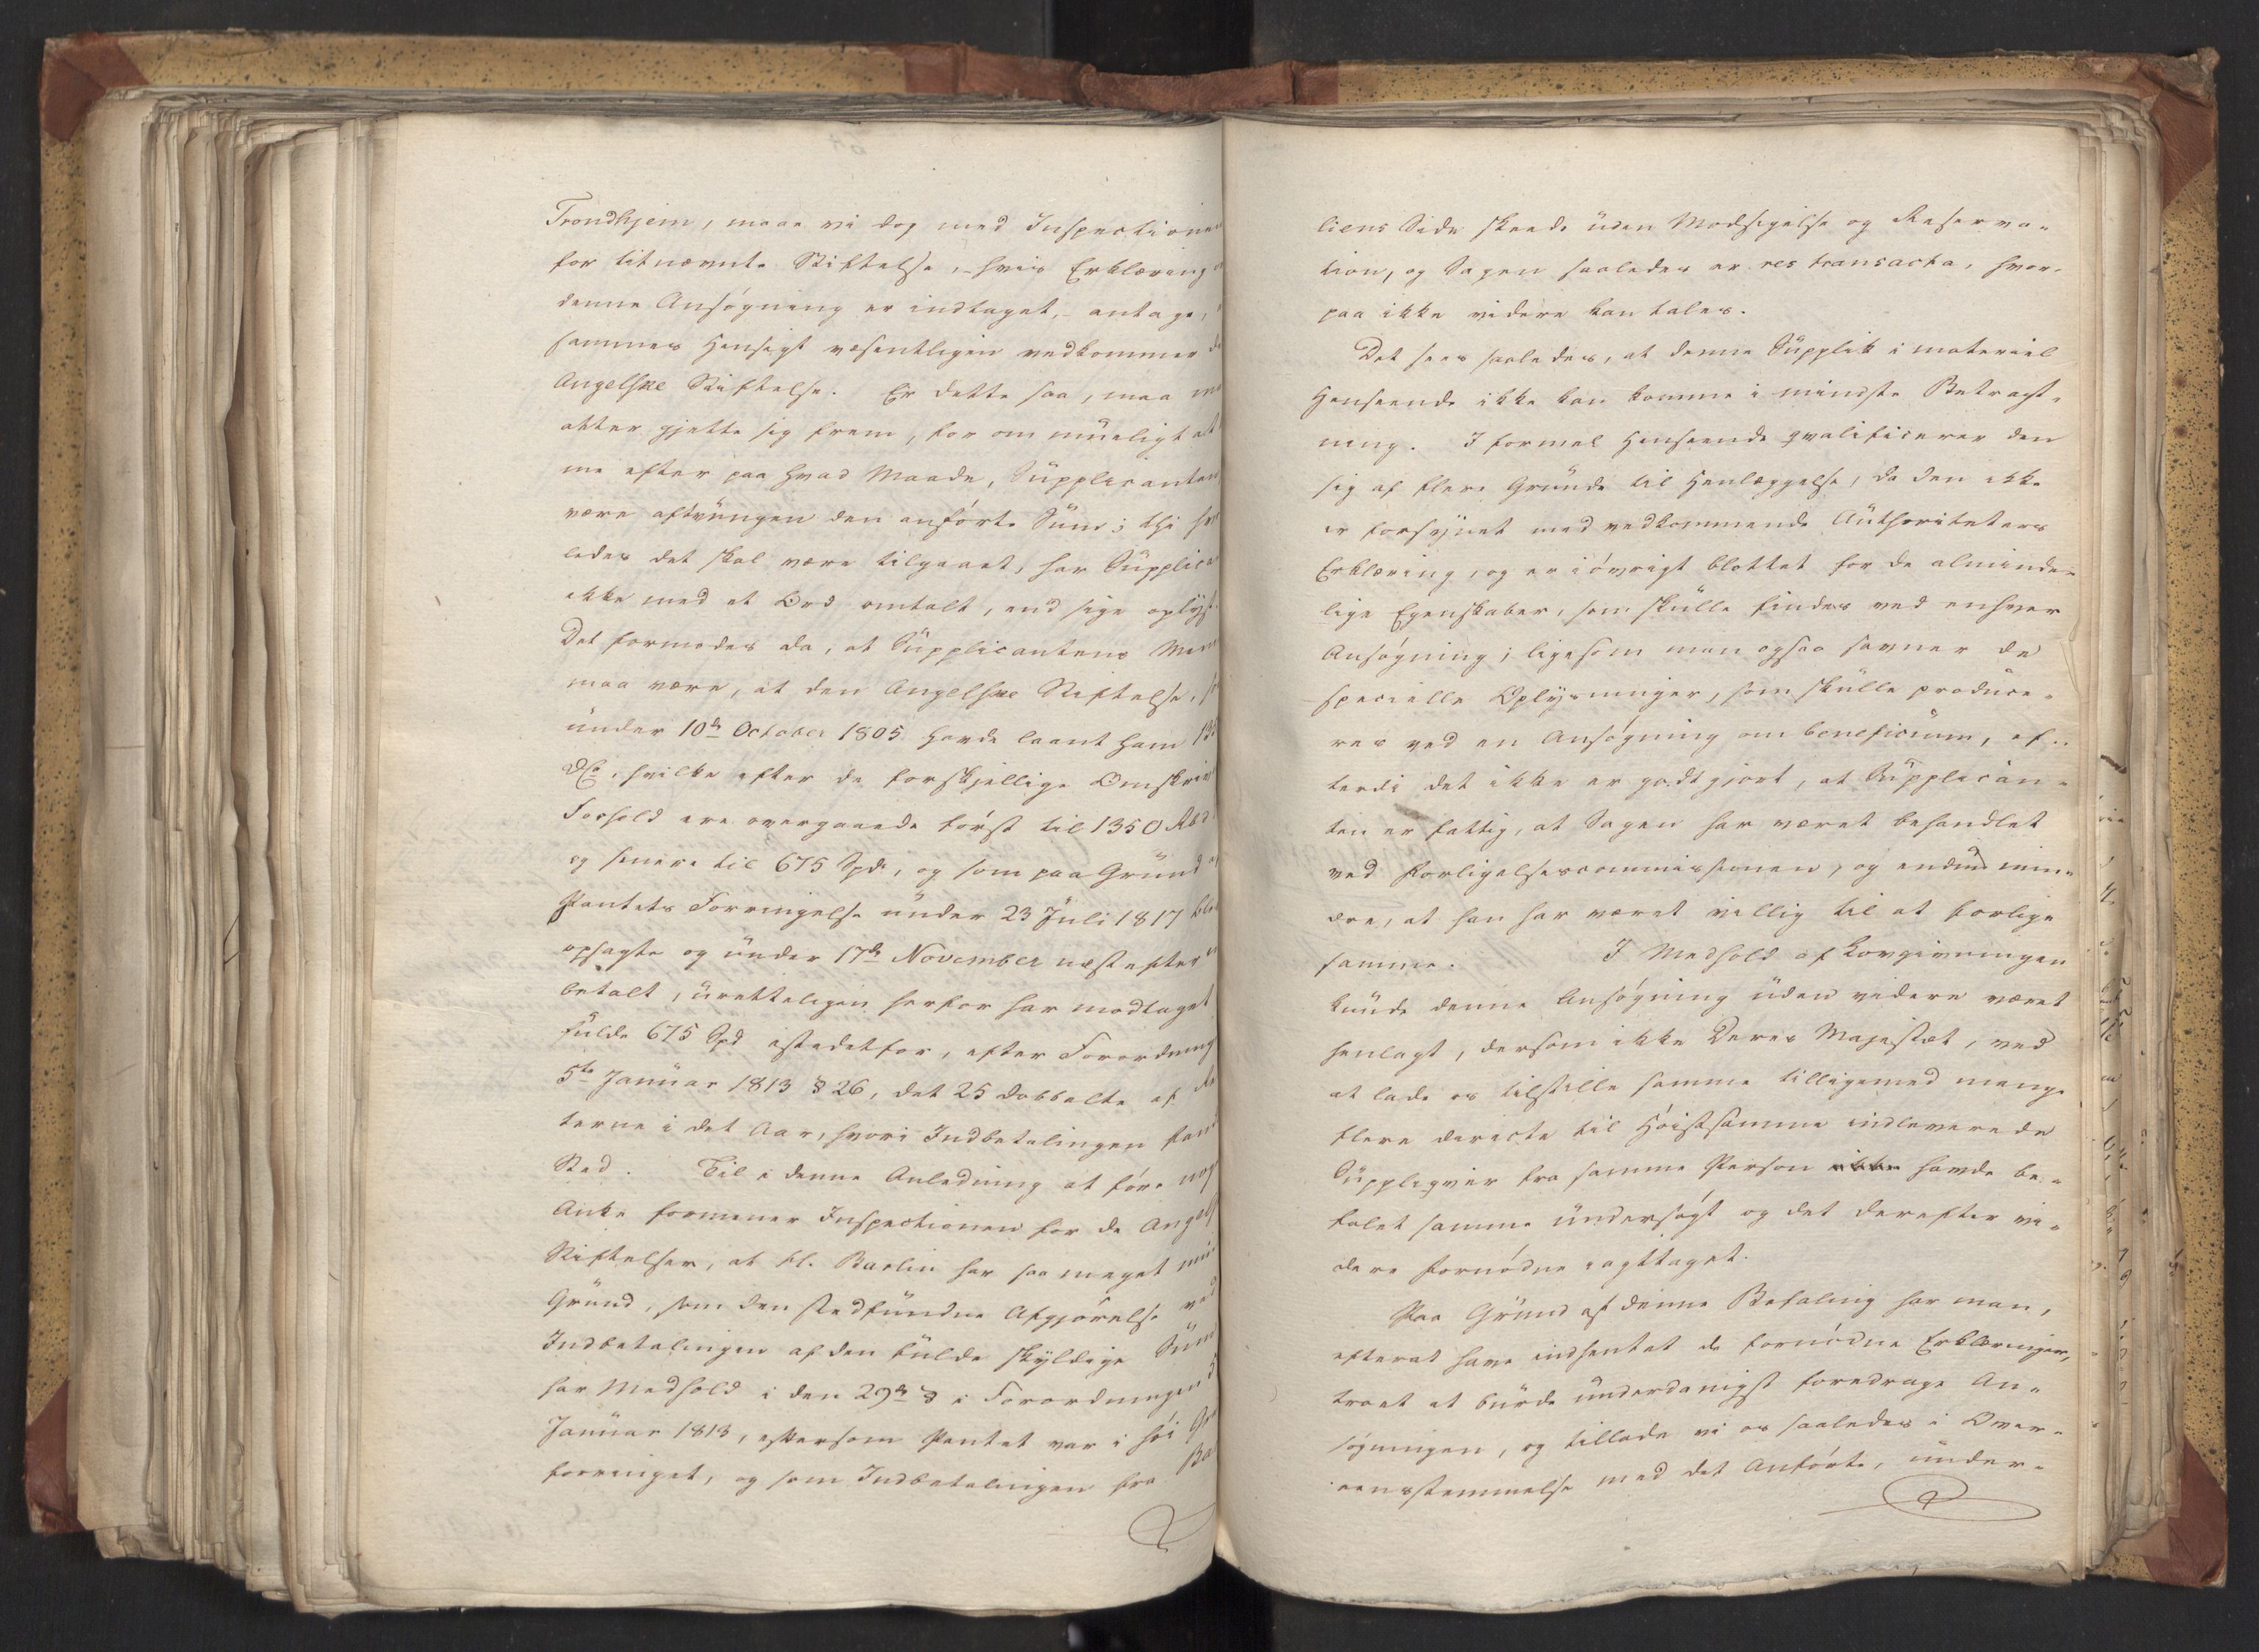 Trondhjem, maae vi dog med Inspectionen
for titnævnte Stiftelse, - hvis Erklæring
denne Ansøgning er indtaget, - antage,
sammes Hensigt væsentligen vedkommer
Angelske Stiftelse. Er dette saa, maa
atter gjette sig frem, for om mueligt at
me efter paa hvad Maade, Supplicanten
være aftvungen den anførte Sum; thi
ledes det skal være tilgaaet, har Supplica
ikke med et Ord omtalt, end sige oplyst.
Det formodes da, at Supplicantens
maa være, at den Angelske Stiftelse,
under 10de October 1805 havde laant ham
hvilke efter de forskjellige Omskriv
Forhold ere overgaaede først til 1350 Rbd
og senere til 675 Spd, og som paa Grund
Pantets Forringelse under 23 Juli 1817
opsagte og under 17de November næstefter
betalt, uretteligen herfor har modtaget
fulde 675 Spd istedetfor, efter Forordning
5te Januar 1813 § 26, det 25 dobbelte af
terne i det Aar, hvori Indbetalingen
Sted. Til i denne Anledning at føre
Anke formener Inspectionen for de
Stiftelser, at H. Barlin har saa meget
Grund, som den stedfundne Afgjørelse
Indbetalingen af den fulde skyldige
har Medhold i den 29de § i Forordningen
Januar 1813, eftersom Pantet var i høi
forringet, og som Indbetalingen fra
liens Side skeede uden Modsigelse og Reserva-
tion, og Sagen saaledes er res transacta, hvor-
paa ikke videre kan tales.
Det sees saaledes, at denne Supplik i materiel
Henseende ikke kan komme i mindste Betragt-
ning. I formel Henseende qvalificerer den
sig af flere Grunde til Henlæggelse, da den ikke
er forsynet med vedkommende Authoriteters
Erklæring, og er iøvrigt blottet for de alminde-
lige Egenskaber, som skulle findes ved enhver
Ansøgning; ligesom man ogsaa savner de
specielle Oplysninger, som skulle produce-
res ved en Ansøgning om beneficium, ef-
terdi det ikke er godtgjort, at Supplican-
ten er fattig, at Sagen har været behandlet
ved Forligelsescommissionen, og endnu min-
dre, at han har været villig til at forlige
samme. I Medhold af Lovgivningen
kunde denne Ansøgning uden videre været
henlagt, dersom ikke Deres Majestæt, ved
at lade os tilstille samme tilligemed mange
flere directe til Høistsamme indleverede
Suppliqver fra samme Person ikke havde be-
falet samme undersøgt og det derefter vi-
dere fornødne iagttaget.
Paa Grund af denne Befaling har man,
efterat have indhentet de fornødne Erklæringer,
troet at burde underdanigst foredrage An-
søgningen, og tillade vi os saaledes i Over-
eensstemmelse med det Anførte, under-